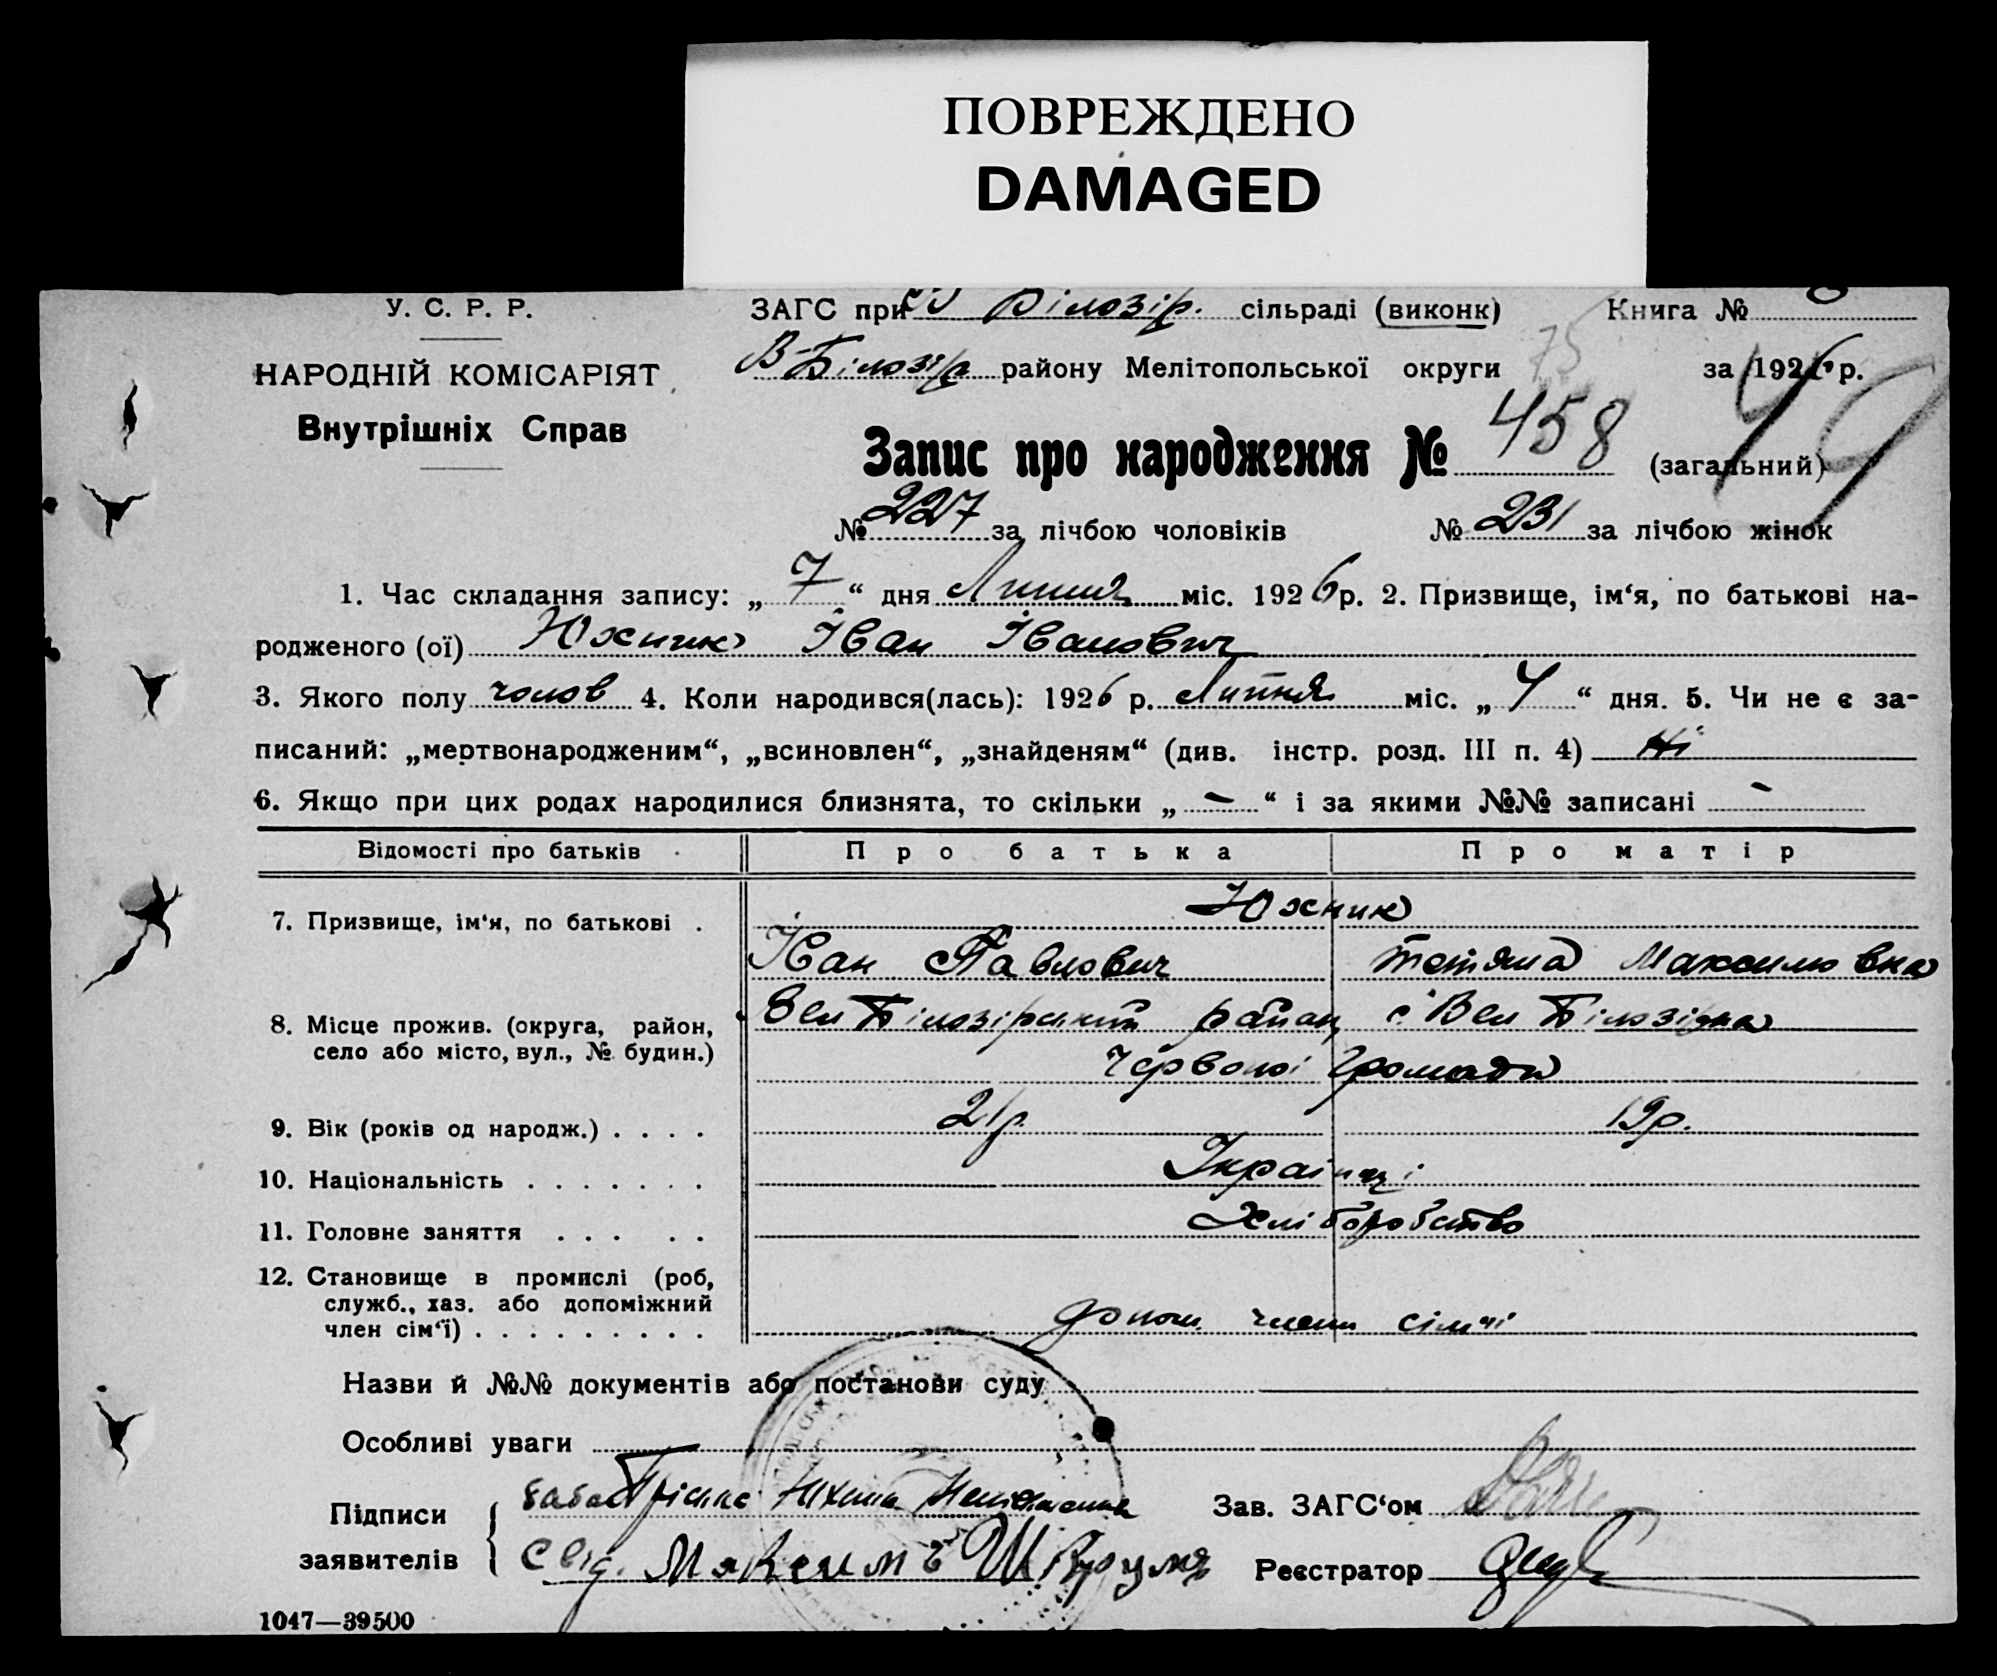 ПОВРЕЖДЕНО
DAMAGED
У. С. Р. Р.
ЗАГС при Білозір. сільраді (виконк)
Книга №
НАРОДНІЙ КОМІСАРІЯТ
В-Білозір району Мелітопольської округи
75
за 1926 р.
Внутрішніх Справ
Запис про народження № 458 (загальний)
49
№ 227 за лічбою чоловіків № 231 за лічбою жінок
1. Час складання запису: „ 7 “ дня Липня міс. 1926 р. 2. Призвище, ім‘я, по батькові на-
родженого (ої) Юхник Іван Іванович
3. Якого полу чолов 4. Коли народився(лась): 1926 р. Липня міс. „ 4 “ дня. 5. Чи не є за-
писаний: „мертвонародженим“, „всиновлен“, „знайденям“ (див. інстр. розд. III п. 4) Ні
6. Якщо при цих родах народилися близнята, то скільки „ – “ і за якими №№ записані –
Відомості про батьків Про батька Про матір
7. Призвище, ім‘я, по батькові . Юхник
Іван Павлович Тетяна Максимовна
8. Місце прожив. (округа, район, село або місто, вул., № будин.) Вел Білозірський район с. Вел Білозірка
Червоної Громади
9. Вік (років од народж.) . . . . 21 р. 19 р.
10. Національність . . . . . . . Українці
11. Головне заняття . . . . . Хліборобство
12. Становище в промислі (роб,
служб., хаз. або допоміжний
член сім‘ї) . . . . . . . . . допом. члени сімьі
Назви й №№ документів або постанови суду
Особливі уваги
Підписи
заявителів
баба
Зав. ЗАГС‘ом
Свід. Максимъ
Реєстратор
1047—39500